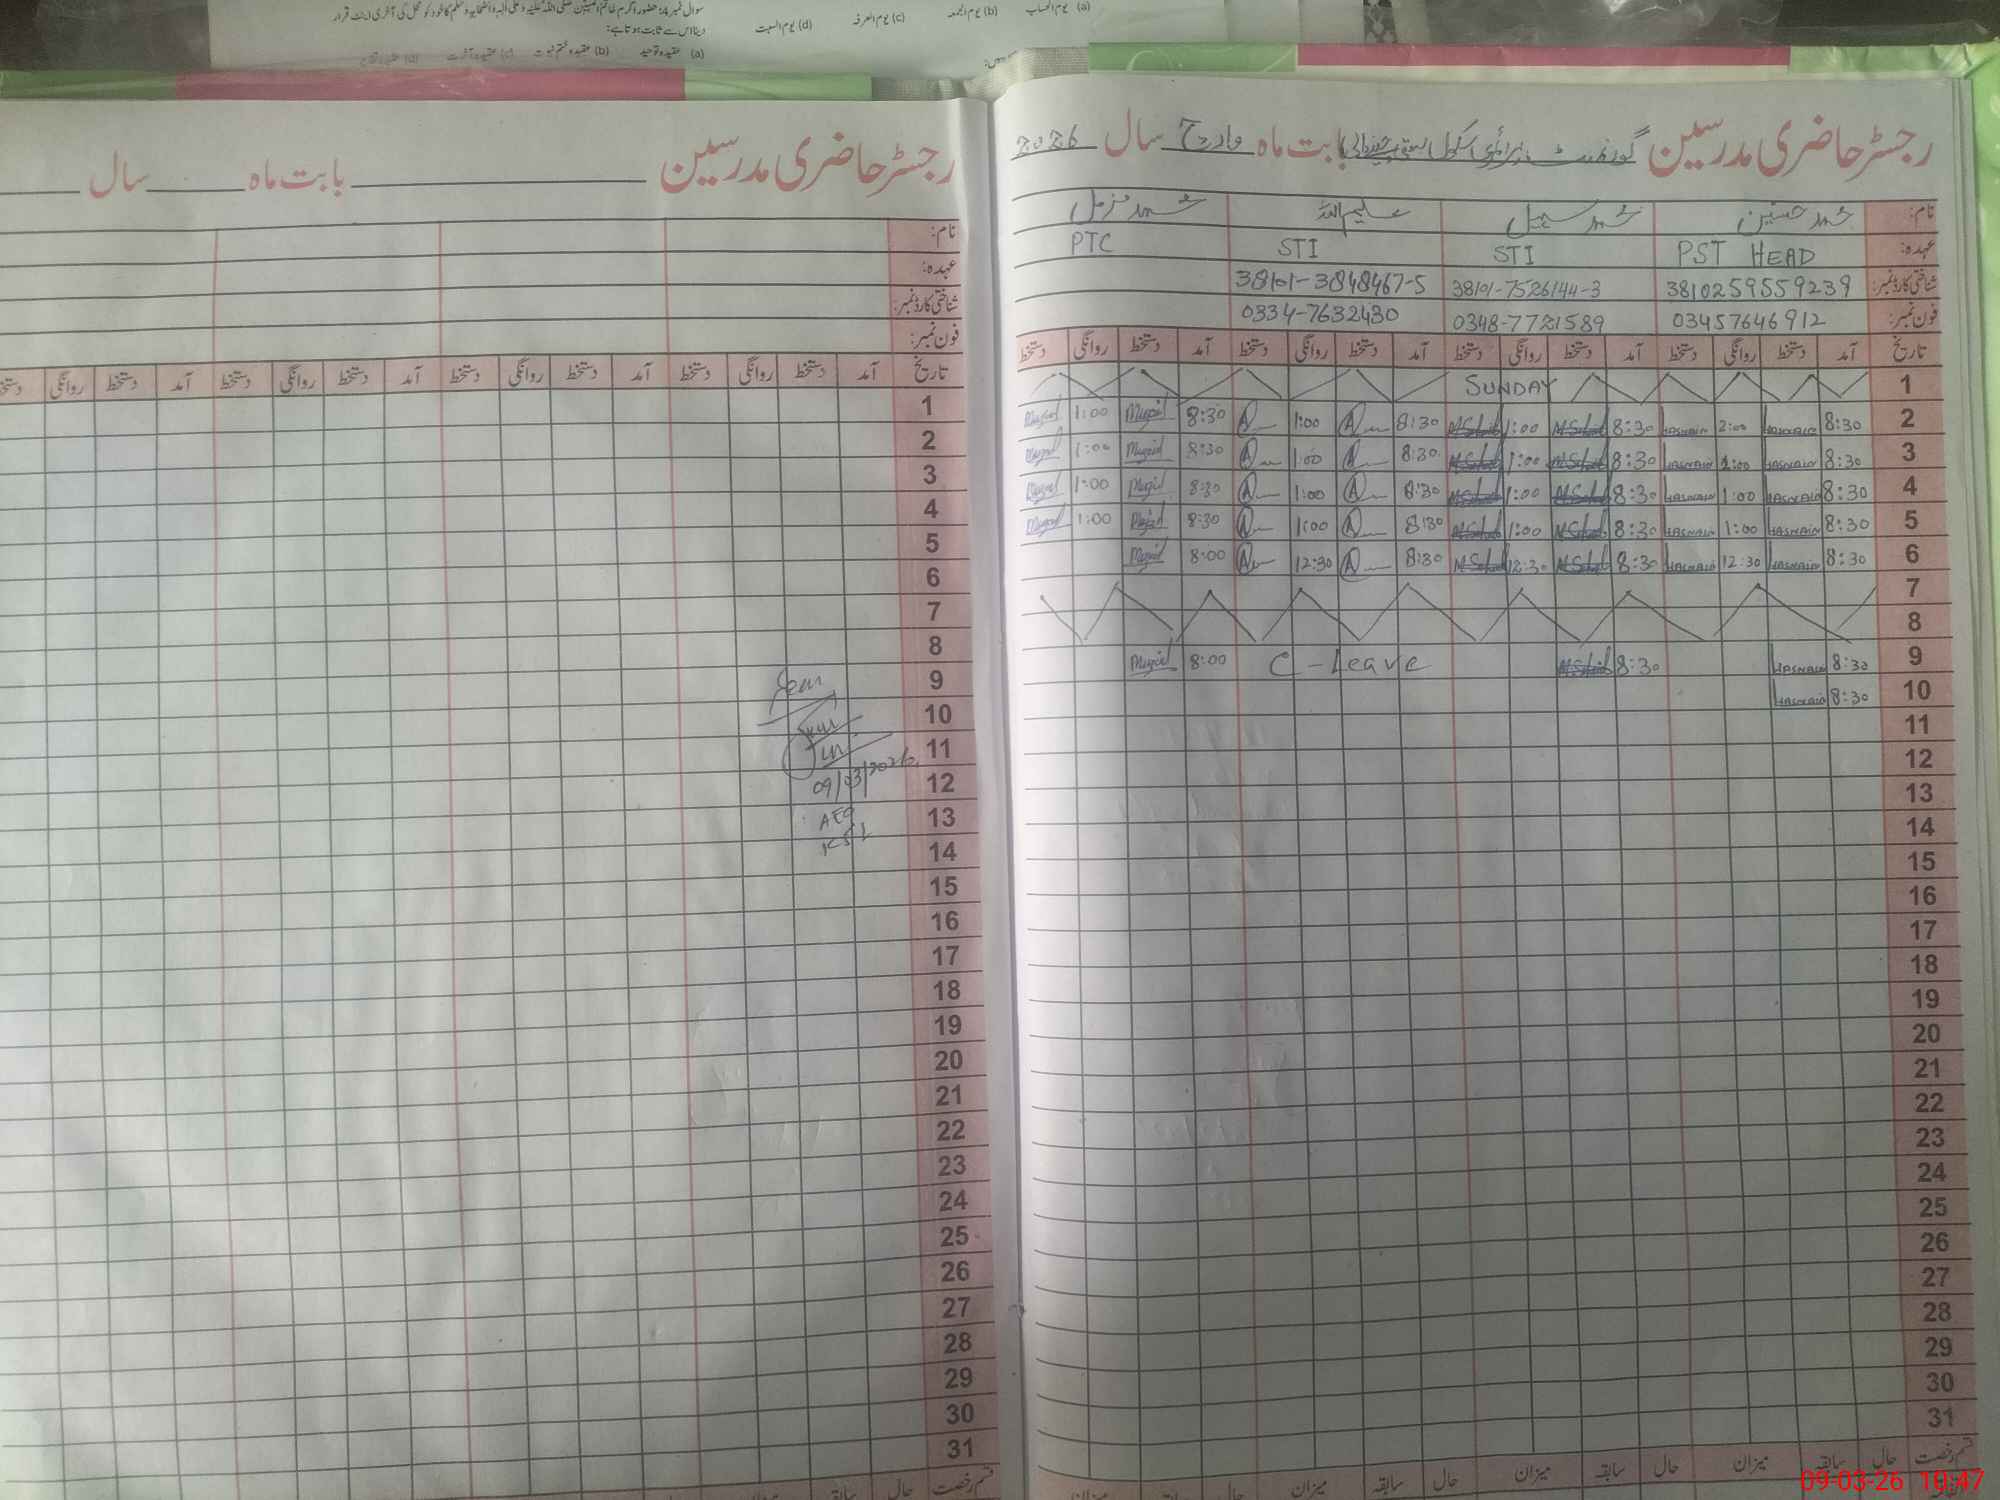 سوال نمبر 4: حضور اکرم خاتم النبیین صلی اللہ علیہ وعلی آلہ واصحابہ وسلم کا خود کو محل کی آخری اینٹ قرار
دینا اس سے ثابت ہوتا ہے:
(a) یوم الحساب (b) یوم الجمعہ (c) یوم العرفہ (d) یوم السبت
(a) عقیدہ توحید (b) عقیدہ ختم نبوت (c) عقیدہ آخرت
رجسٹر حاضری مدرسین گورنمنٹ پرائمری سکول بستی بابت ماہ مارچ سال 2026
نام: محمد حسنین محمد سہیل علیم اللہ محمد مزمل
عہدہ: PST HEAD STI STI PTC
شناختی کارڈ نمبر: 3810259559239 38101-7526144-3 38101-3848467-5
فون نمبر: 03457646912 0348-7721589 0334-7632430
تاریخ آمد دستخط روانگی دستخط آمد دستخط روانگی دستخط آمد دستخط روانگی دستخط آمد دستخط روانگی دستخط
1 SUNDAY
2 8:30 HASNAIN 2:00 HASNAIN 8:30 M.Sohail 1:00 M.Sohail 8:30 1:00 8:30 1:00
3 8:30 HASNAIN 2:00 HASNAIN 8:30 M.Sohail 1:00 M.Sohail 8:30 1:00 8:30 1:00
4 8:30 HASNAIN 1:00 HASNAIN 8:30 M.Sohail 1:00 M.Sohail 8:30 1:00 8:30 1:00
5 8:30 HASNAIN 1:00 HASNAIN 8:30 M.Sohail 1:00 M.Sohail 8:30 1:00 8:30 1:00
6 8:30 HASNAIN 12:30 HASNAIN 8:30 M.Sohail 12:30 M.Sohail 8:30 12:30 8:00
7
8
9 8:30 HASNAIN 8:30 M.Sohail C-Leave 8:00
10 8:30 HASNAIN
11
12
13
14
15
16
17
18
19
20
21
22
23
24
25
26
27
28
29
30
31
قسم رخصت حال سابقہ میزان حال سابقہ میزان حال سابقہ میزان حال میزان
رجسٹر حاضری مدرسین بابت ماہ سال
نام:
عہدہ:
شناختی کارڈ نمبر:
فون نمبر:
تاریخ آمد دستخط روانگی دستخط آمد دستخط روانگی دستخط آمد دستخط روانگی دستخط آمد دستخط روانگی دستخط
1
2
3
4
5
6
7
8
9
10
11
12
13
14
15
16
17
18
19
20
21
22
23
24
25
26
27
28
29
30
31
09/03/2026
AEO
قسم رخصت حال سابقہ میزان حال
09-03-26 10:47